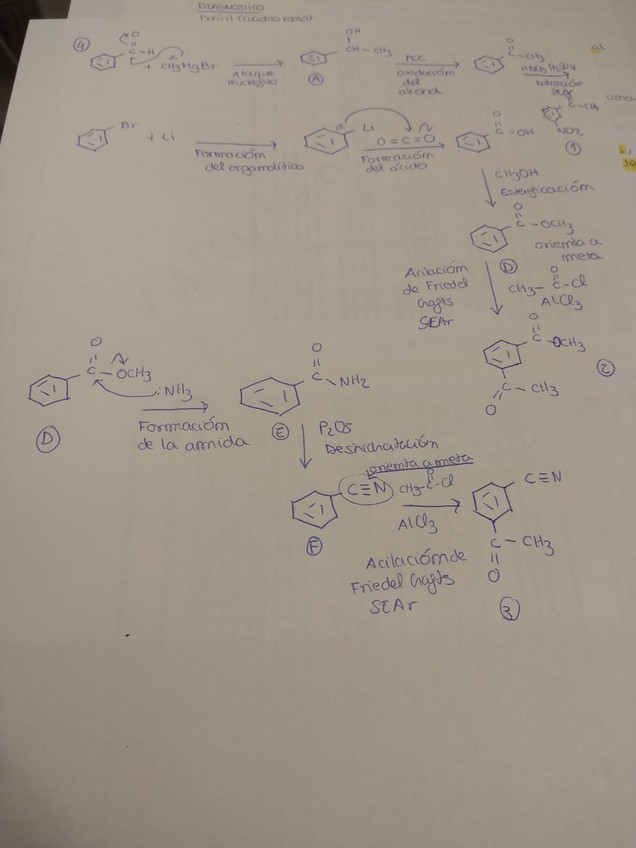 DIAGNOSTICO
④
O
C-H
+ CH3MgBr
Ataque
nucleofilo
OH
CH-CH3
A
PCC
oxidación
del
alcohol
O
C-CH3
HNO3, H2SO4
Nitración
SEAr
O
C-CH3
NO2
①
Br
+ Li
Formación
del organolitico
Li
O=C=O
Formación
del ácido
O
C-OH
CH3OH
Esterificación
O
C-OCH3
D
orienta a
meta
Acilación
de Friedel
Crafts
SEAr
O
CH3-C-Cl
AlCl3
O
C-OCH3
C-CH3
O
②
O
C-OCH3
D
:NH3
Formación
de la amida
O
C-NH2
E
P2O5
Deshidratación
orienta a meta
C≡N
F
O
CH3-C-Cl
AlCl3
Acilación de
Friedel Crafts
SEAr
C≡N
C-CH3
O
③